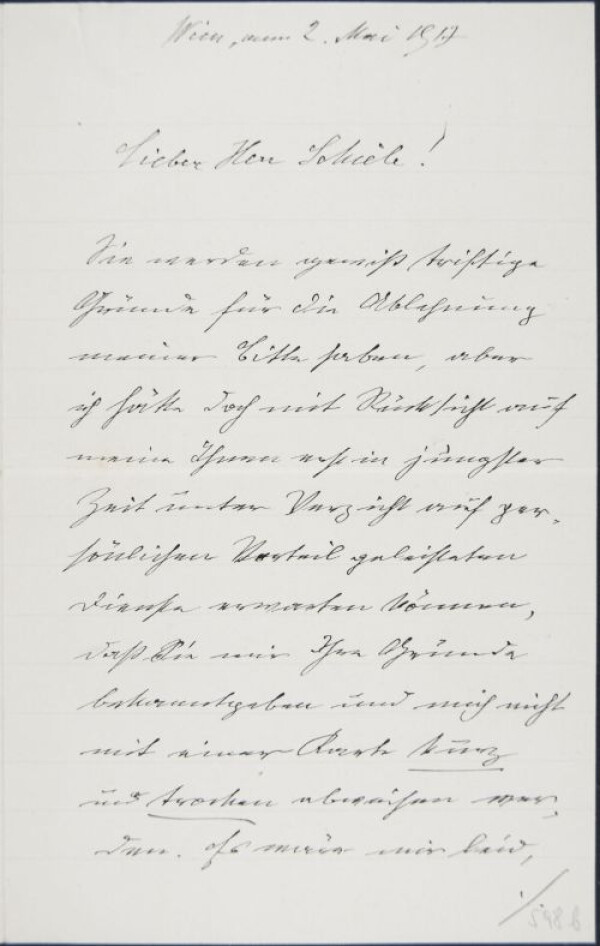 Wien, am 2. Mai 1917
Lieber Herr Schiele!
Sie werden gewiß triftige
Gründe für die Ablehnung
meiner Bitte haben, aber
ich hätte doch mit Rücksicht auf
meine Ihnen erst in jüngster
Zeit unter Verzicht auf per-
sönlichen Vorteil geleisteten
Dienste erwarten können,
daß Sie mir Ihre Gründe
bekanntgeben und mich nicht
mit einer Karte kurz
und trocken abweisen wer-
den. Es wäre mir leid,